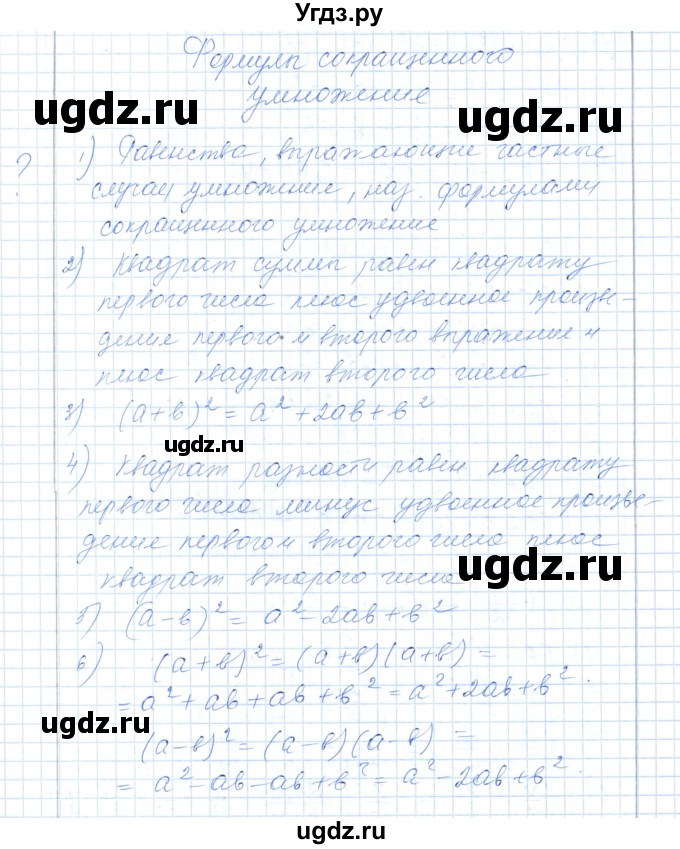 Угдз.ру
Формулы сокращенного
умножение
ugdz.ru
ugdz.ru
? 1) Равенства, выражающие частные
случаи умножение, наз. формулами
сокращенного умножение
2) Квадрат суммы равен квадрату
первого числа плюс удвоенное произве-
дение первого и второго выражение и
плюс квадрат второго числа
3) (a+b)² = a²+2ab+b²
ugdz.ru
4) Квадрат разности равен квадрату
первого числа минус удвоенное произве-
дение первого и второго числа плюс
квадрат второго числа
ugdz.ru
5) (a-b)² = a²-2ab+b²
6) (a+b)² = (a+b)(a+b) =
= a²+ab+ab+b² = a²+2ab+b².
ugdz.ru
(a-b)² = (a-b)(a-b) =
= a²-ab-ab+b² = a²-2ab+b².
ugdz.ru